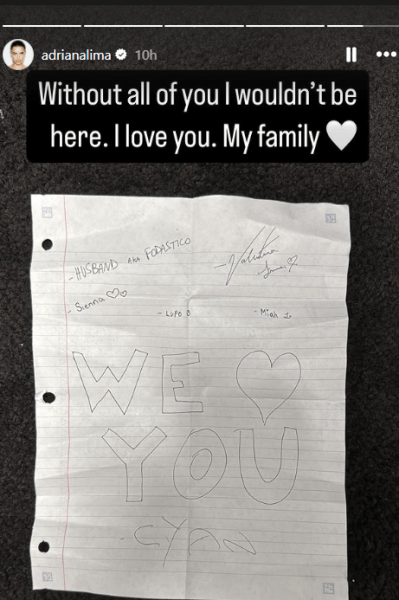 adrianalima 10h
Without all of you I wouldn't be
here. I love you. My family 🤍
-HUSBAND AKA FODASTICO
-Valentina
-Sienna ♡♡
-LUPO
-Miah
WE ♡
YOU
-CYAN